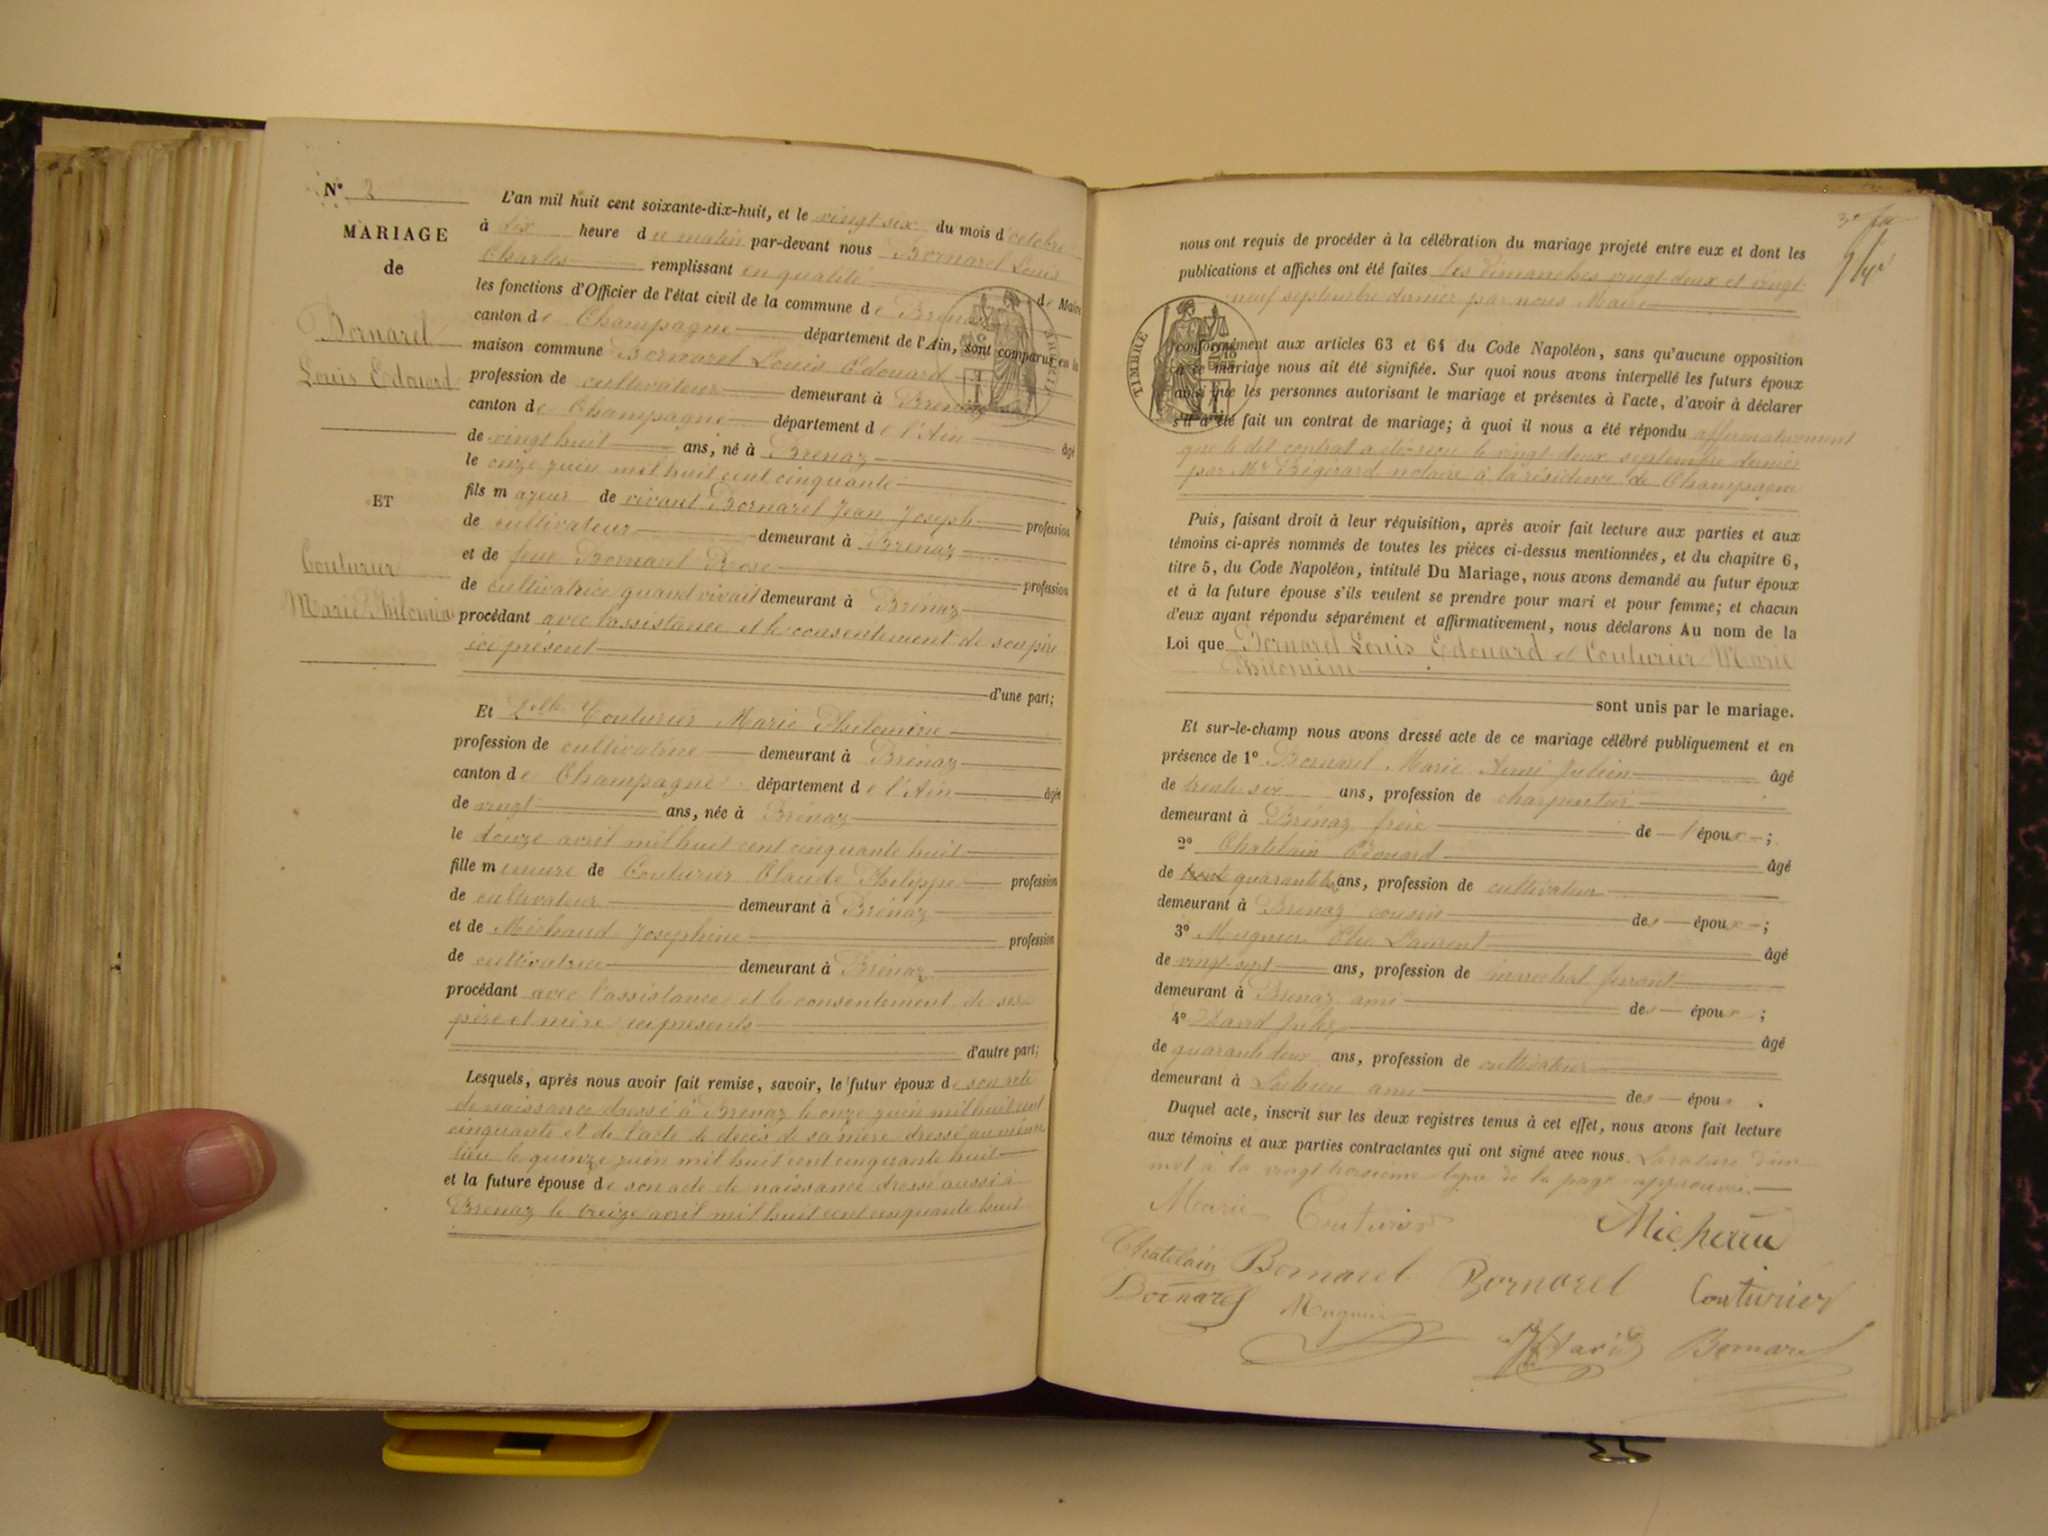 N° 2
MARIAGE
de
Bornarel
Louis Edouard
ET
Couturier
Marie Philomine
L'an mil huit cent soixante-dix-huit, et le vingt six du mois d'octobre
à dix heure du matin par-devant nous Bornarel Louis
Charles remplissant en qualité de Maire
les fonctions d'Officier de l'état civil de la commune de Brénaz
canton de Champagne département de l'Ain, sont comparus en la
maison commune Bornarel Louis Edouard
profession de cultivateur demeurant à Brénaz
canton de Champagne département de l'Ain âgé
de vingt huit ans, né à Brénaz
le onze juin mil huit cent cinquante
fils majeur de vivant Bornarel Jean Joseph profession
de cultivateur demeurant à Brénaz
et de feue Bornarel Rose profession
de cultivatrice quand vivait demeurant à Brénaz
procédant avec l'assistance et le consentement de son père
ici présent
d'une part;
Et Dlle Couturier Marie Philomine
profession de cultivatrice demeurant à Brénaz
canton de Champagne département de l'Ain âgée
de vingt ans, née à Brénaz
le douze avril mil huit cent cinquante huit
fille mineure de Couturier Claude Philippe profession
de cultivateur demeurant à Brénaz
et de Michaud Josephine profession
de cultivatrice demeurant à Brénaz
procédant avec l'assistance et le consentement de ses
père et mère ici présents
d'autre part;
Lesquels, après nous avoir fait remise, savoir, le futur époux de son acte
de naissance dressé à Brénaz le onze juin mil huit cent
cinquante et de l'acte de décès de sa mère dressé au même
lieu le quinze juin mil huit cent cinquante huit
et la future épouse de son acte de naissance dressé aussi à
Brénaz le treize avril mil huit cent cinquante huit
nous ont requis de procéder à la célébration du mariage projeté entre eux et dont les
publications et affiches ont été faites les dimanches vingt deux et vingt
neuf septembre dernier par nous Maire
TIMBRE
conformément aux articles 63 et 64 du Code Napoléon, sans qu'aucune opposition
à ce mariage nous ait été signifiée. Sur quoi nous avons interpellé les futurs époux
ainsi que les personnes autorisant le mariage et présentes à l'acte, d'avoir à déclarer
s'il a été fait un contrat de mariage; à quoi il nous a été répondu affirmativement
que le dit contrat a été reçu le vingt deux septembre dernier
par Me notaire à la résidence de Champagne
Puis, faisant droit à leur réquisition, après avoir fait lecture aux parties et aux
témoins ci-après nommés de toutes les pièces ci-dessus mentionnées, et du chapitre 6,
titre 5, du Code Napoléon, intitulé Du Mariage, nous avons demandé au futur époux
et à la future épouse s'ils veulent se prendre pour mari et pour femme; et chacun
d'eux ayant répondu séparément et affirmativement, nous déclarons Au nom de la
Loi que Bornarel Louis Edouard et Couturier Marie
Philomine
sont unis par le mariage.
Et sur-le-champ nous avons dressé acte de ce mariage célébré publiquement et en
présence de 1° Bornarel Marie Aimé Julien âgé
de trente six ans, profession de charpentier
demeurant à Brénaz frère de l'époux;
2° Chatelain Edouard âgé
de quarante ans, profession de cultivateur
demeurant à Brénaz cousin des époux;
3° Mugnier Elie Laurent âgé
de vingt-sept ans, profession de maréchal ferrant
demeurant à Brénaz ami des époux;
4° David Jules âgé
de quarante deux ans, profession de cultivateur
demeurant à ami des époux.
Duquel acte, inscrit sur les deux registres tenus à cet effet, nous avons fait lecture
aux témoins et aux parties contractantes qui ont signé avec nous. La rature d'un
mot à la vingt troisième ligne de la page approuvée.
Marie Couturier Michaud
Chatelain Bornarel Bornarel Couturier
Bornarel Mugnier David Bornarel